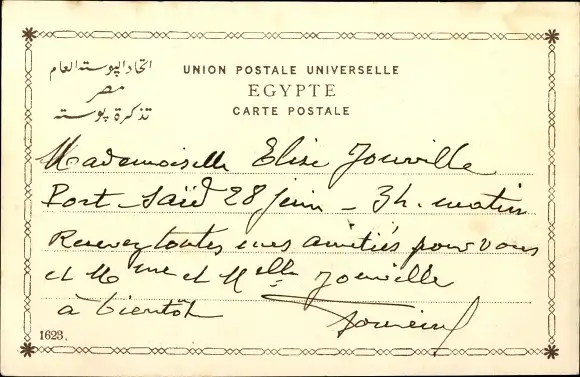 اتحاد البوسته العام
مصر
تذكرة بوسته
UNION POSTALE UNIVERSELLE
EGYPTE
CARTE POSTALE
Mademoiselle Elise Jouville
Port-Saïd 28 juin - 3h. matin
Recevez toutes mes amitiés pour vous
et Mme et Melle Jouville
à bientôt
1623.